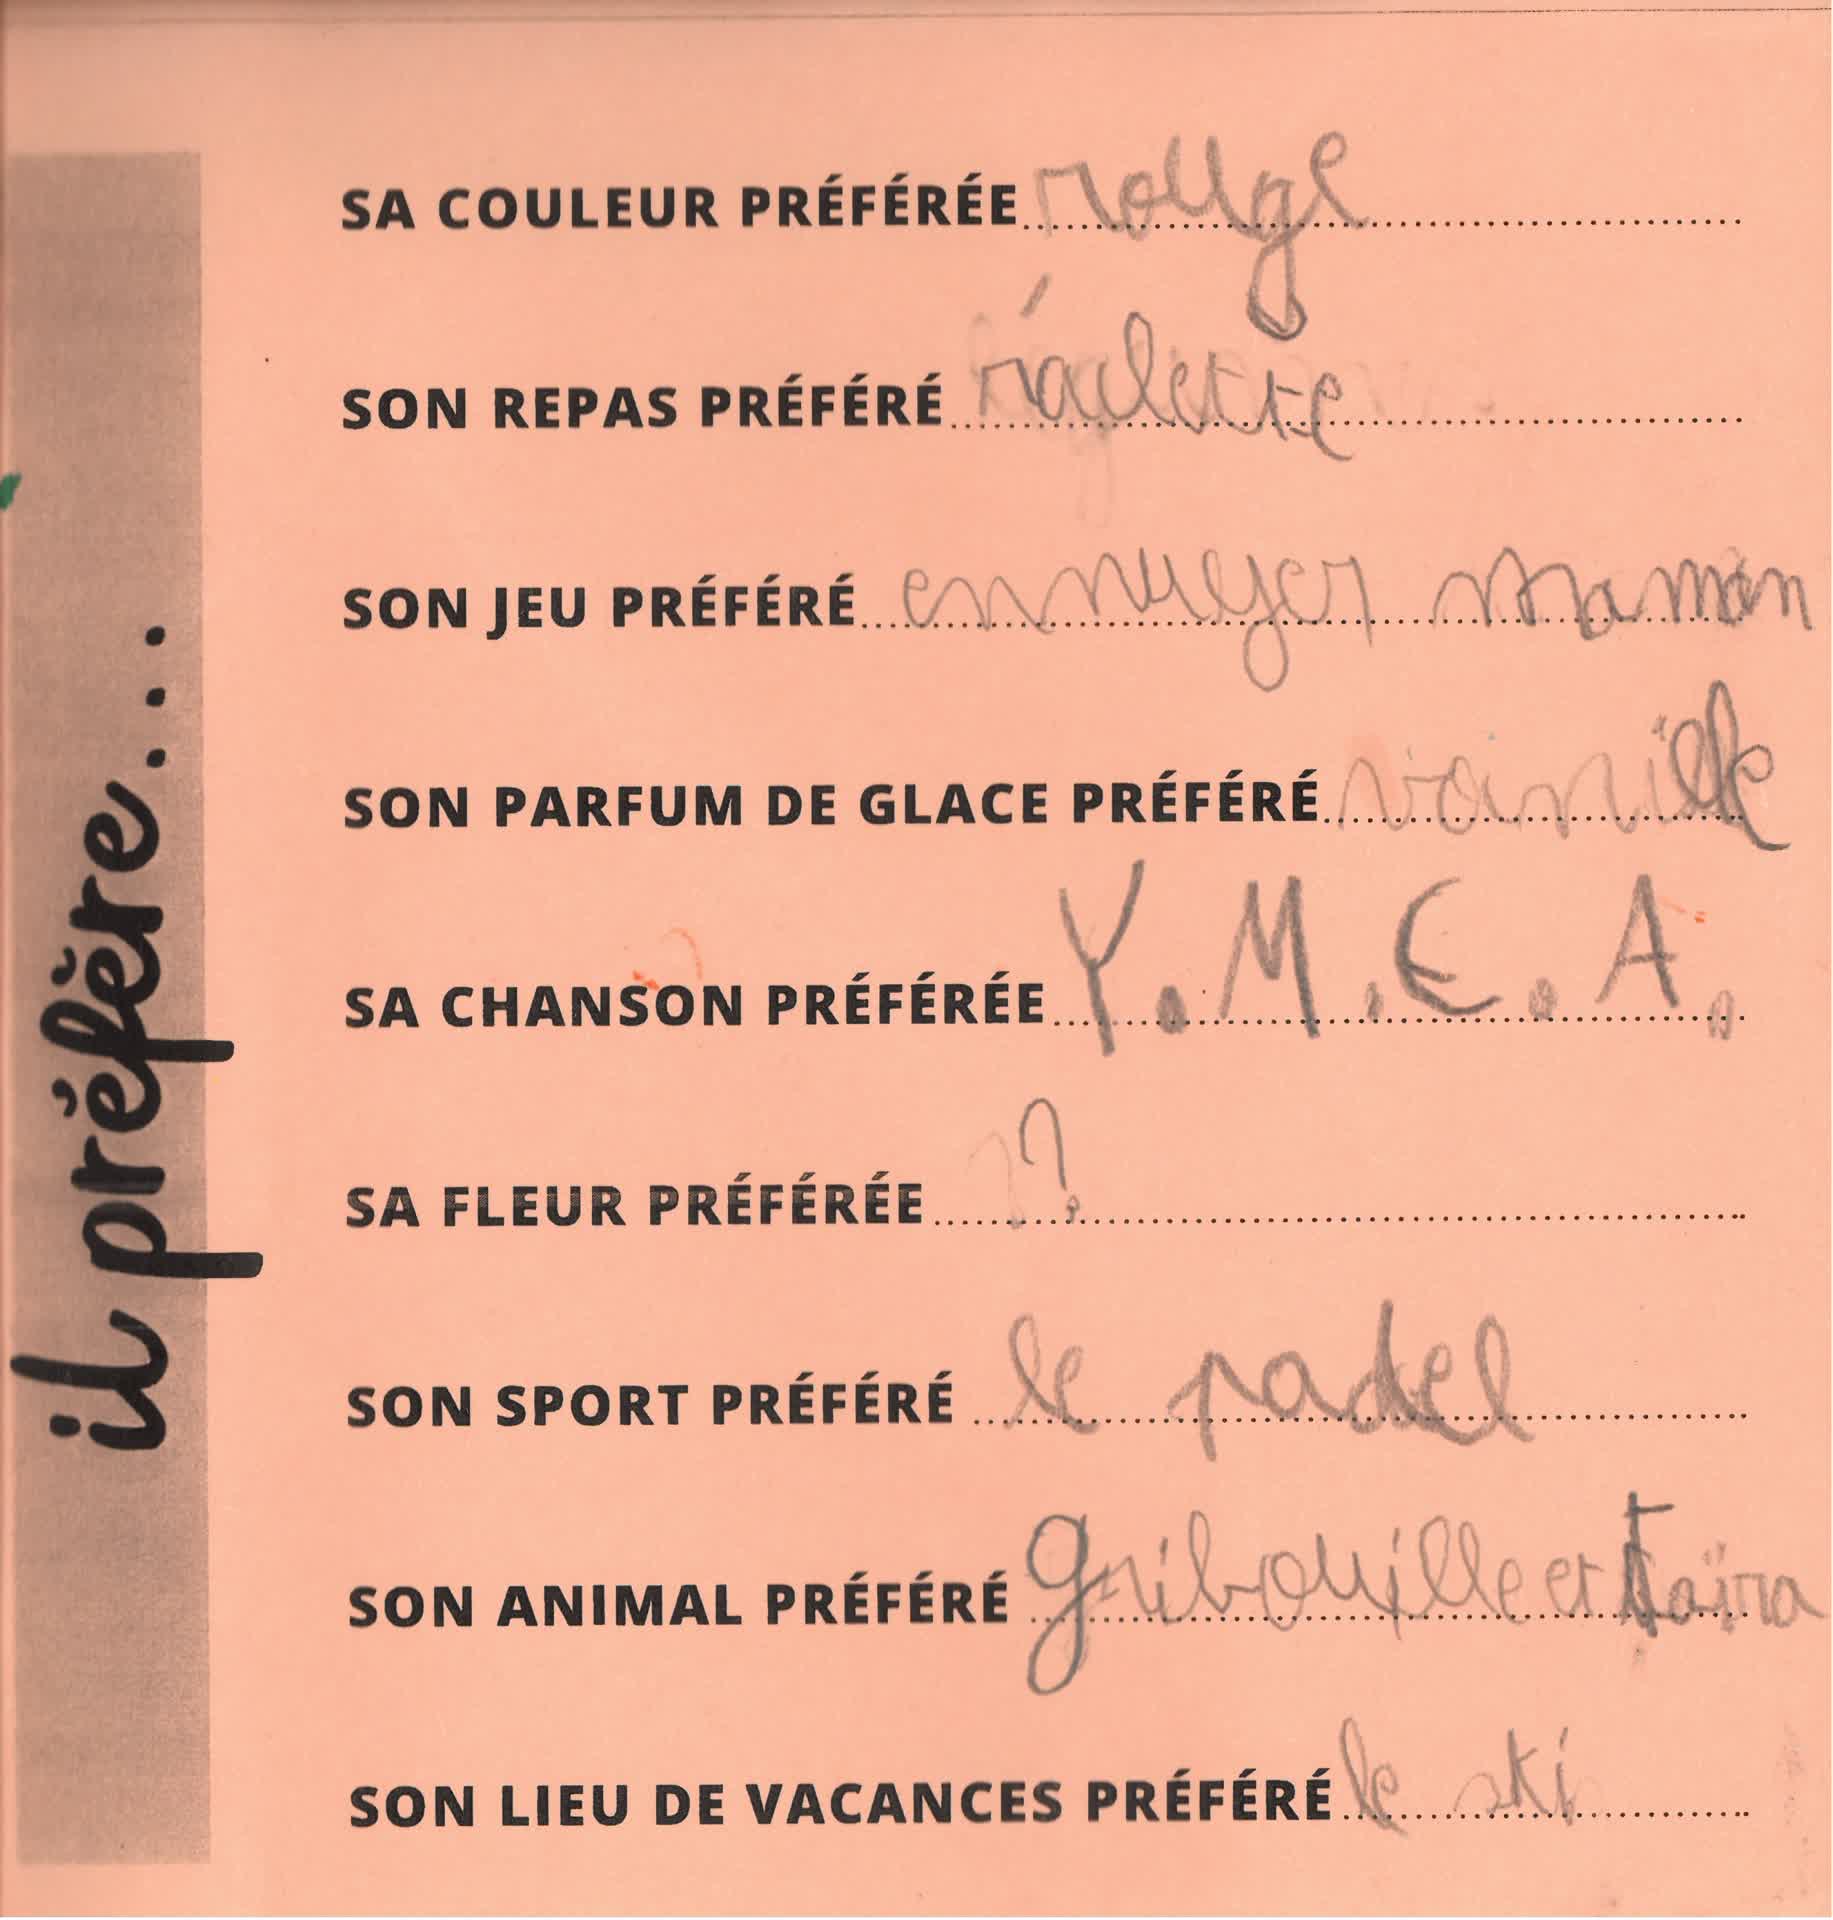 il préfère...
SA COULEUR PRÉFÉRÉE rouge
SON REPAS PRÉFÉRÉ raclette
SON JEU PRÉFÉRÉ ennuyer maman
SON PARFUM DE GLACE PRÉFÉRÉ vanille
SA CHANSON PRÉFÉRÉE Y.M.C.A.
SA FLEUR PRÉFÉRÉE ?
SON SPORT PRÉFÉRÉ le padel
SON ANIMAL PRÉFÉRÉ gribouille et
SON LIEU DE VACANCES PRÉFÉRÉ le ski